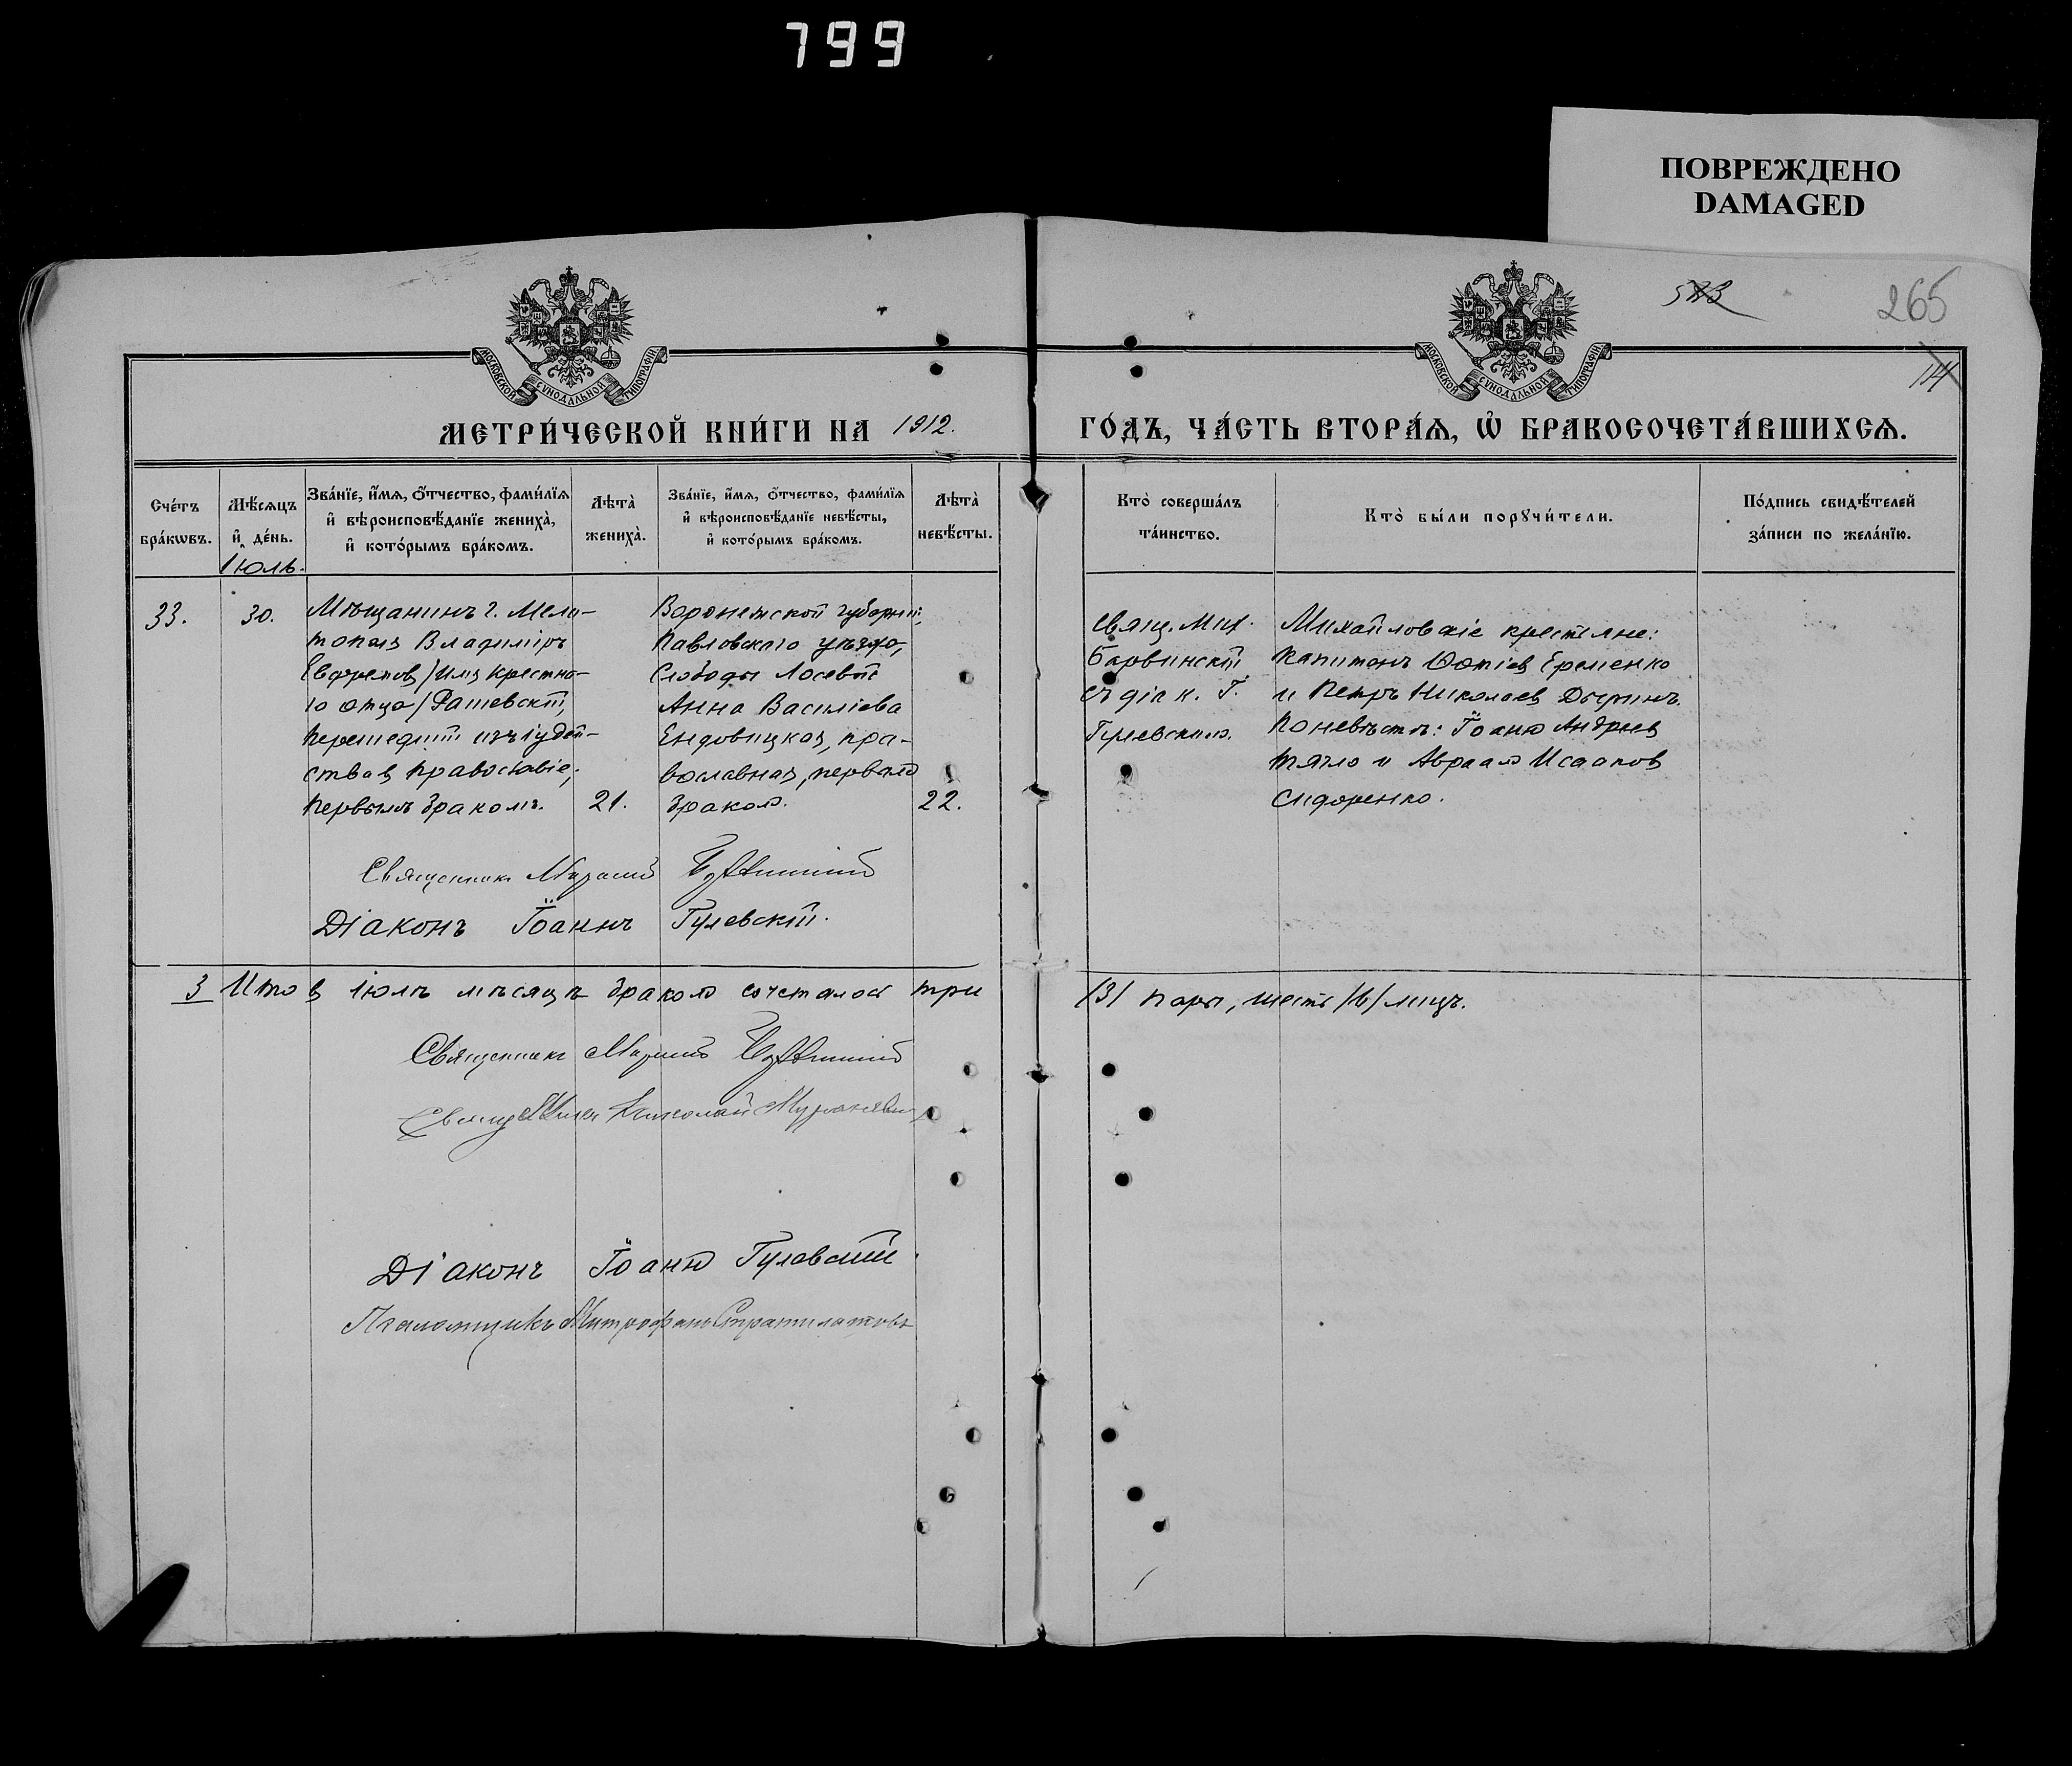 799
ПОВРЕЖДЕНО
DAMAGED
265
МОСКОВСКОЙ СѴНОДАЛЬНОЙ ТИПОГРАФІИ
МОСКОВСКОЙ СѴНОДАЛЬНОЙ ТИПОГРАФІИ
МЕТРИ́ЧЕСКОЙ КНИ́ГИ НА 1912. ГО́ДЪ, ЧА́СТЬ ВТОРА́Ѧ, Ѡ҆ БРАКОСОЧЕТА́ВШИХСѦ.
Сче́тъ
бра́кωвъ.
Мѣ́сѧцъ
и҆ де́нь.
Іюль.
Зва́нїе, и҆́мѧ, ѻ҆́тчество, фами́лїѧ
и҆ вѣроисповѣ́данїе жениха̀,
и҆ кото́рымъ бра́комъ.
Лѣта̀
жениха̀.
Зва́нїе, и҆́мѧ, ѻ҆́тчество, фами́лїѧ
и҆ вѣроисповѣ́данїе невѣ́сты,
и҆ кото́рымъ бра́комъ.
Лѣта̀
невѣ́сты.
Кто̀ соверша́лъ
та́инство.
Кто̀ бы́ли порꙋчи́тели.
По́дпись свидѣ́телей
за́писи по жела́нїю.
33.
30.
Мѣщанинъ г. Мели-
тополя Владиміръ
Евфремов /имя крестна-
го отца/ Рашевскій,
перешедшій изъ іудей-
ства въ православіе,
первымъ бракомъ.
21.
Воронежской губерніи,
Павловскаго уѣзда,
Слободы Лосевой
Анна Василіева
Ендовицкая, пра-
вославная, первымъ
бракомъ.
22.
Свящ. Мих.
Барвинскій
съ діак. І.
Гулевскимъ.
Михайловскіе крестьяне:
Капитонъ Фотіев Еременко
и Петръ Николаев Дыринъ.
По невѣстѣ: Іоаннъ Андреев
Тягло и Авраамъ Исааков
Сидоренко.
Священникъ Михаилъ Барвинскій
Діаконъ Іоаннъ Гулевскій.
3 Итого въ іюлѣ мѣсяцѣ бракомъ сочеталось три /3/ пары, шесть /6/ лицъ.
Священникъ Михаилъ Барвинскій
Николай
Діаконъ Іоаннъ Гулевскій.
Псаломщикъ Митрофанъ Стратилатовъ